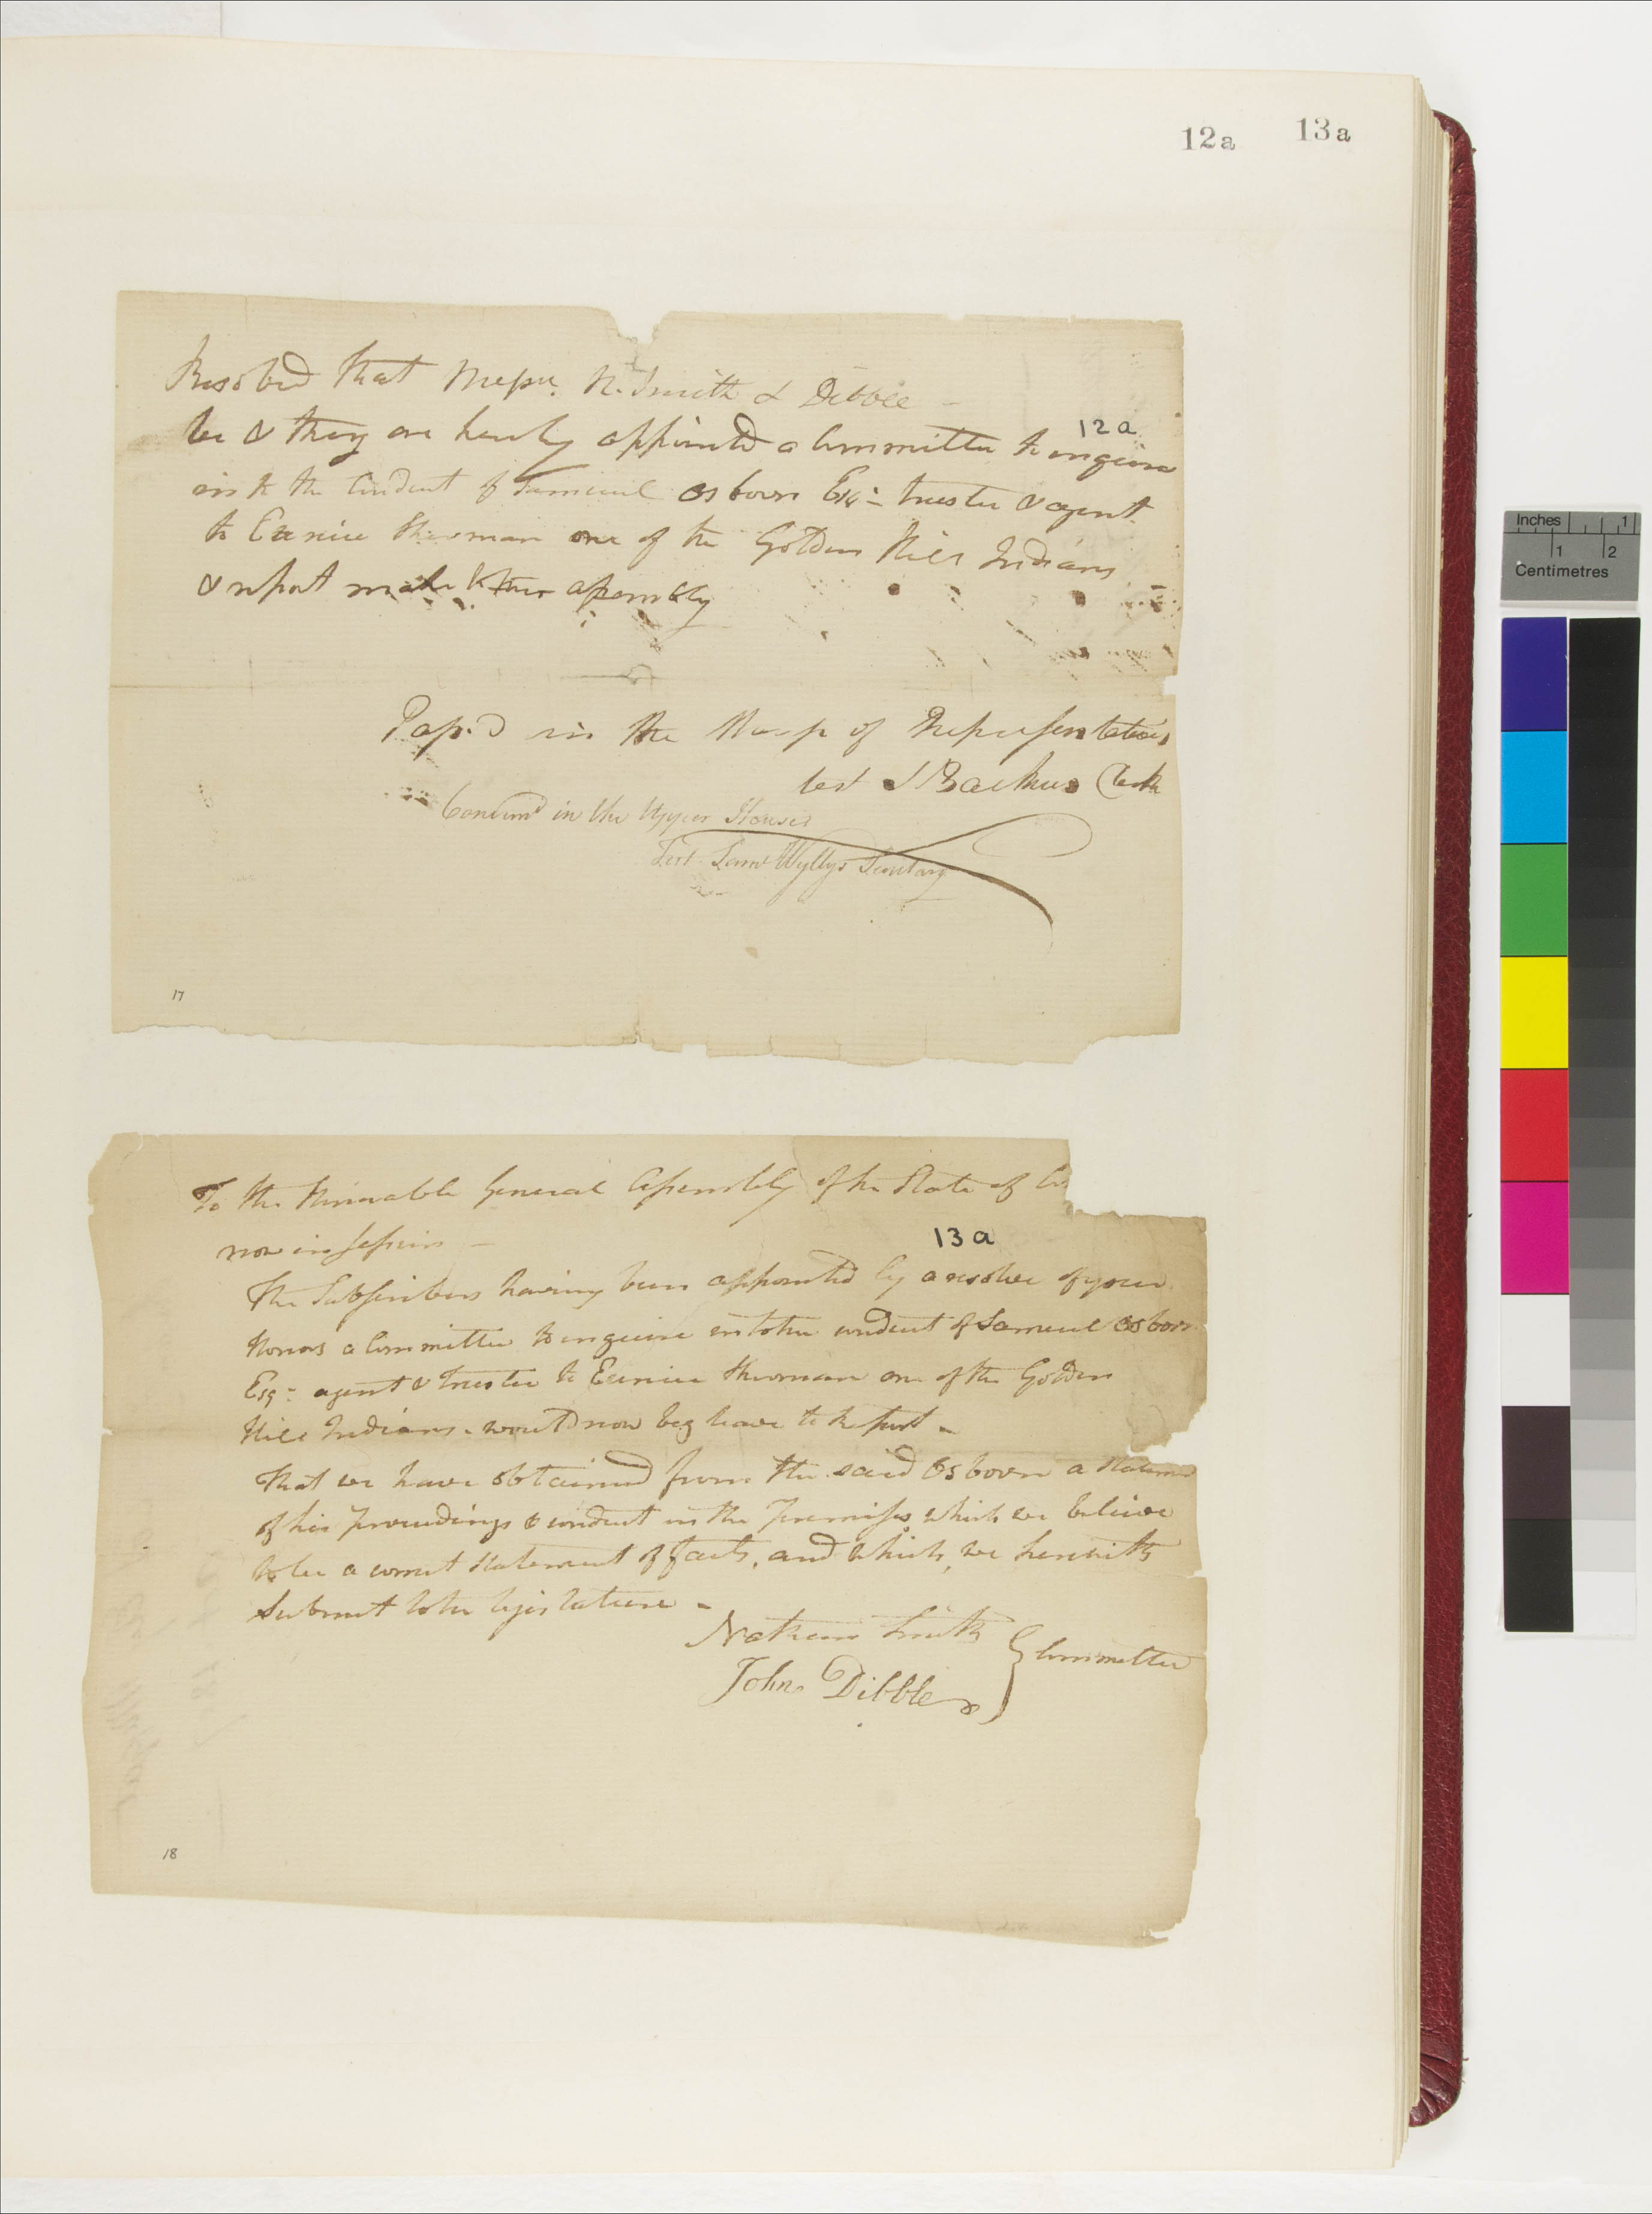 12a 13a
Resolved that Messrs. N. Smith & Dibble –
be & they are hereby appointed a Committee to enquire
12a
into the Conduct of Samuel Osborn Esqr trustee & agent
to Eunice Sherman one of the Golden Hill Indians
& report make to this assembly
Pass'd in the House of Representatives
test J Backus Clerk
Concurrd in the Upper House
Test Saml Wyllys Secretary
17
To the Honorable General Assembly of the State of Co
now in session –
13a
The Subscribers having been appointed by a resolve of your
Honors a Committee to enquire into the conduct of Samuel Osborn
Esq: agent & trustee to Eunice Sherman one of the Golden
Hill Indians – would now beg leave to Report –
That we have obtained from the said Osborn a Statem
of his proceedings & conduct in the Premises which we believe
to be a correct statement of facts, and which, we herewith
Submit to the legislature –
Nathan Smith } Committee
John Dibble
18